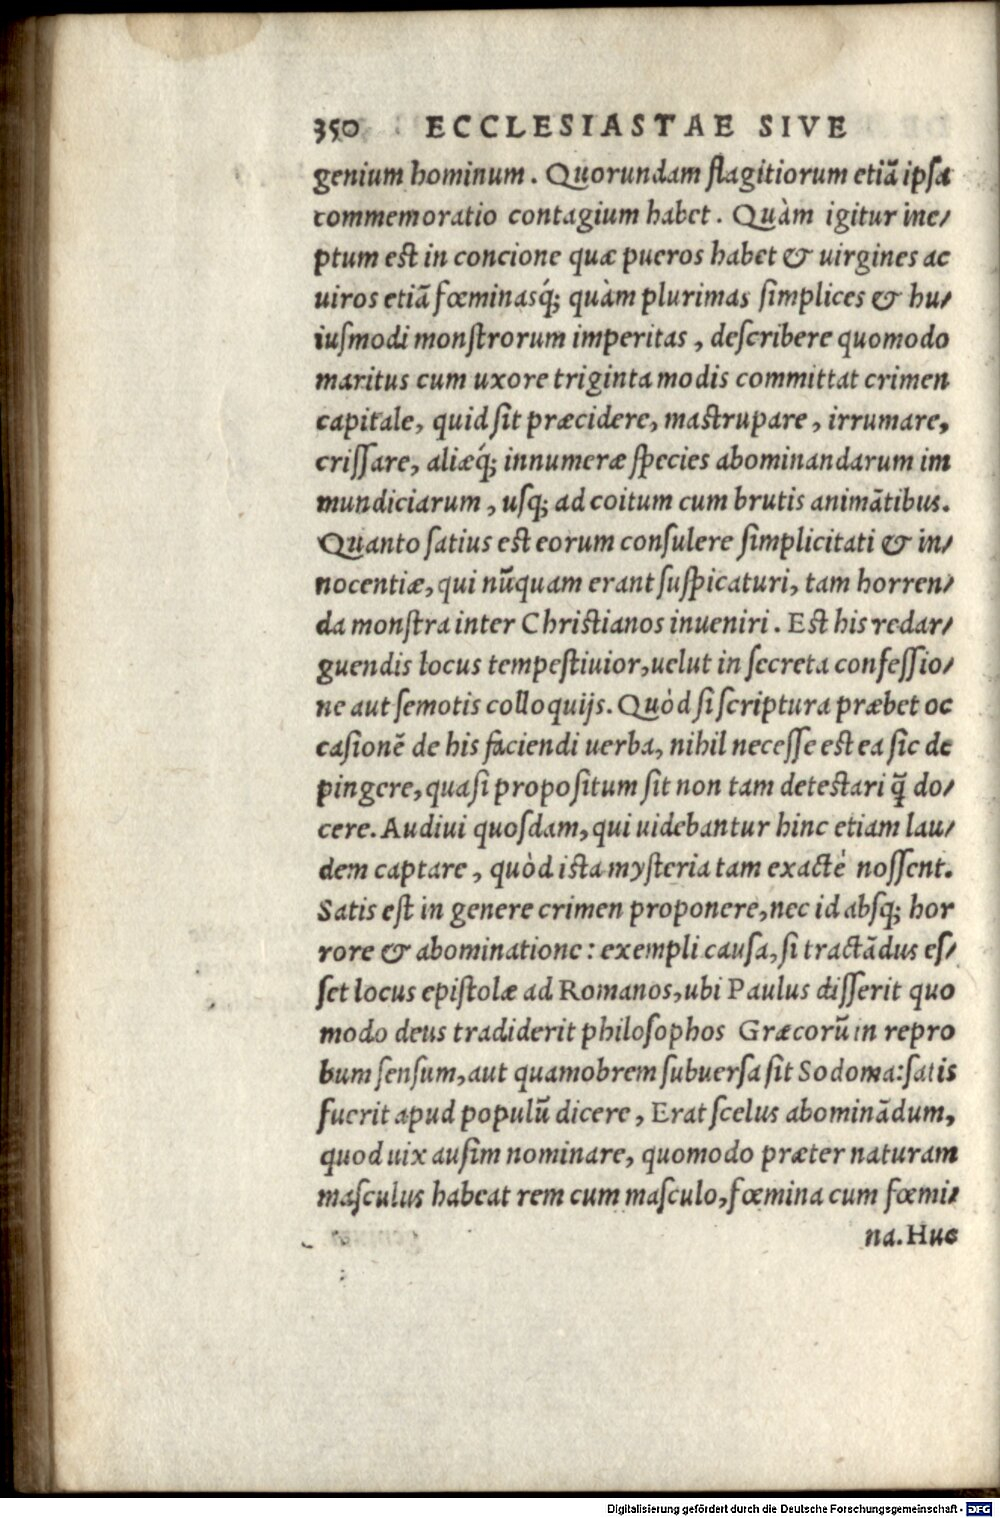 350 ECCLESIASTAE SIVE
genium hominum. Quorundam flagitiorum etiã ipſa
commemoratio contagium habet. Quàm igitur ine/
ptum eſt in concione quæ pueros habet & uirgines ac
uiros etiã fœminasq́; quàm plurimas ſimplices & hu/
iuſmodi monſtrorum imperitas, deſcribere quomodo
maritus cum uxore triginta modis committat crimen
capitale, quid ſit præcidere, maſtrupare, irrumare,
criſſare, aliæq́; innumeræ ſpecies abominandarum im
mundiciarum, uſq; ad coitum cum brutis animãtibus.
Quanto ſatius eſt eorum conſulere ſimplicitati & in/
nocentiæ, qui nũquam erant ſuſpicaturi, tam horren/
da monſtra inter Chriſtianos inueniri. Eſt his redar/
guendis locus tempeſtiuior, uelut in ſecreta confeſſio/
ne aut ſemotis colloquijs. Quòd ſi ſcriptura præbet oc
caſionẽ de his faciendi uerba, nihil neceſſe eſt ea ſic de
pingere, quaſi propoſitum ſit non tam deteſtari q̃ do/
cere. Audiui quoſdam, qui uidebantur hinc etiam lau/
dem captare, quòd iſta myſteria tam exactè noſſent.
Satis eſt in genere crimen proponere, nec id abſq; hor
rore & abominatione: exempli cauſa, ſi tractãdus eſ/
ſet locus epiſtolæ ad Romanos, ubi Paulus diſſerit quo
modo deus tradiderit philoſophos Græcorũ in repro
bum ſenſum, aut quamobrem ſubuerſa ſit Sodoma: ſatis
fuerit apud populũ dicere, Erat ſcelus abominãdum,
quod uix auſim nominare, quomodo præter naturam
maſculus habeat rem cum maſculo, fœmina cum fœmi/
na. Huc
Digitalisierung gefördert durch die Deutsche Forschungsgemeinschaft - DFG